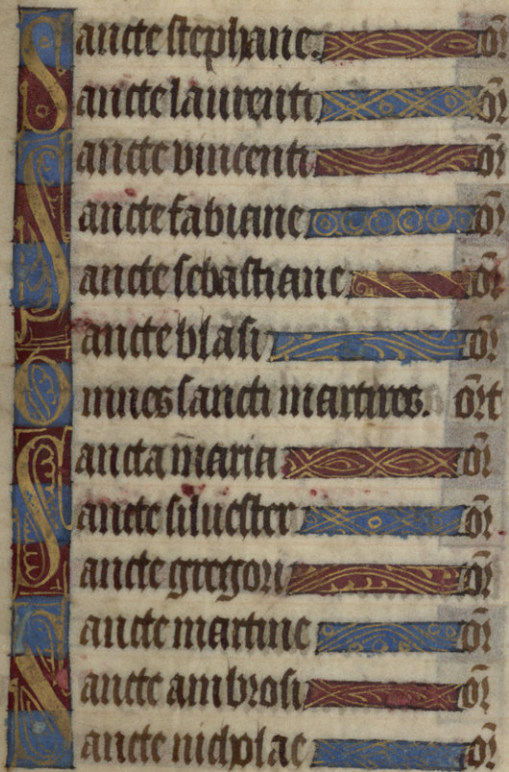 Sancte stephane. or̄
Sancte laurenti or̄
Sancte vincenti or̄
Sancte fabiane or̄
Sancte sebastiane or̄
Sancte blasi or̄
Omnes sancti martires. ort
Sancta maria or̄
Sancte siluester or̄
Sancte gregori or̄
Sancte martine or̄
Sancte ambrosi or̄
Sancte nicholae or̄